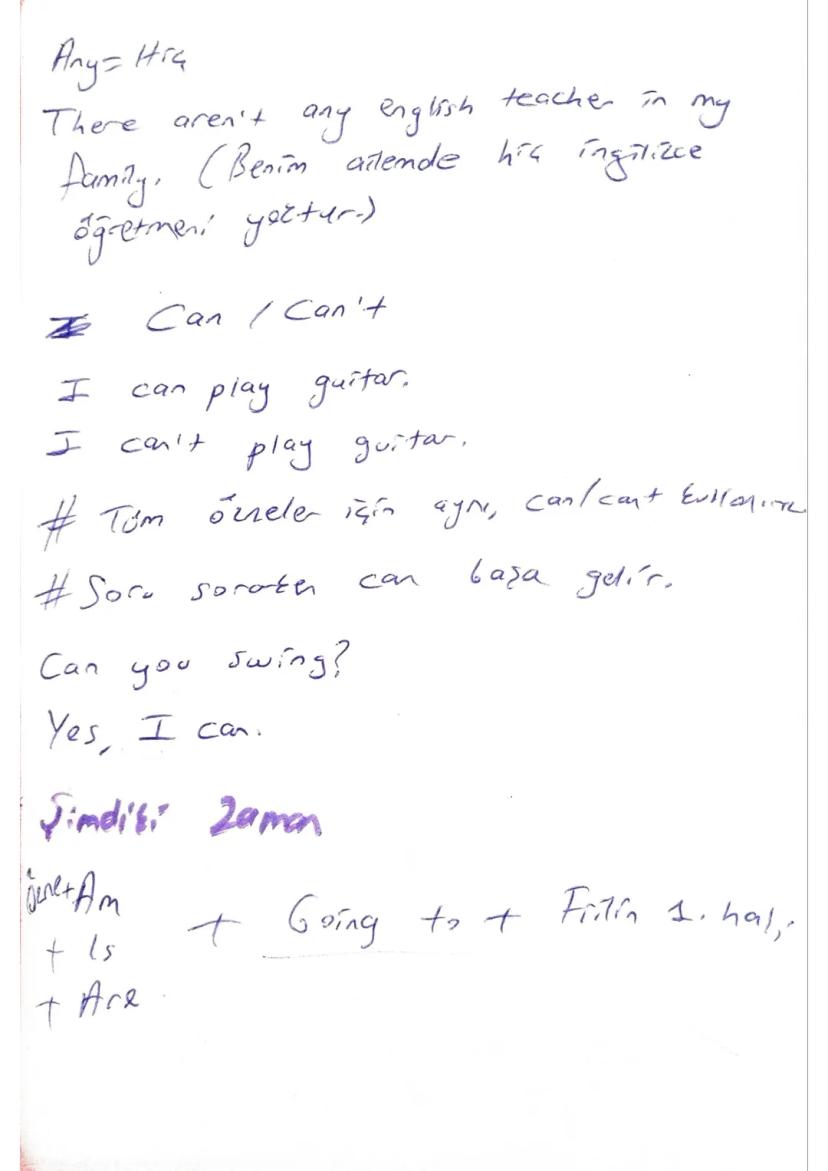 Any = Hiç
There aren't any english teacher in my
family. (Benim ailemde hiç ingilizce
öğretmeni yoktur.)
Can / Can't
I can play guitar.
I can't play guitar.
# Tüm özneler için aynı, can/cant kullanılır
# Soru sorarken can başa gelir.
Can you swing?
Yes, I can.
Şimdiki Zaman
özne + Am
+ Is + Going to + Fiilin 1. hali
+ Are